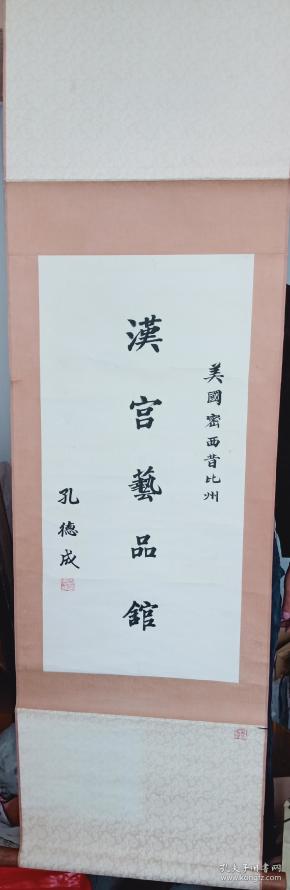 美國密西昔比州
漢宮藝品館
孔德成
孔夫子旧书网
www.kongfz.com